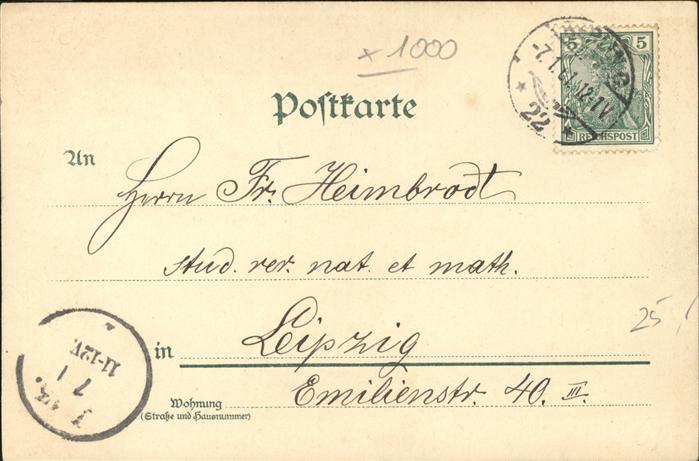 × 1000
5 5
-7.1.
12-1V
* 22 *
REICHSPOST
Postkarte
An
Herrn Fr. Heimbrodt
stud. rer. nat. et math.
25,
in Leipzig
Wohnung
(Straße und Hausnummer)
Emilienstr. 40. III.
7 1
11-12V.